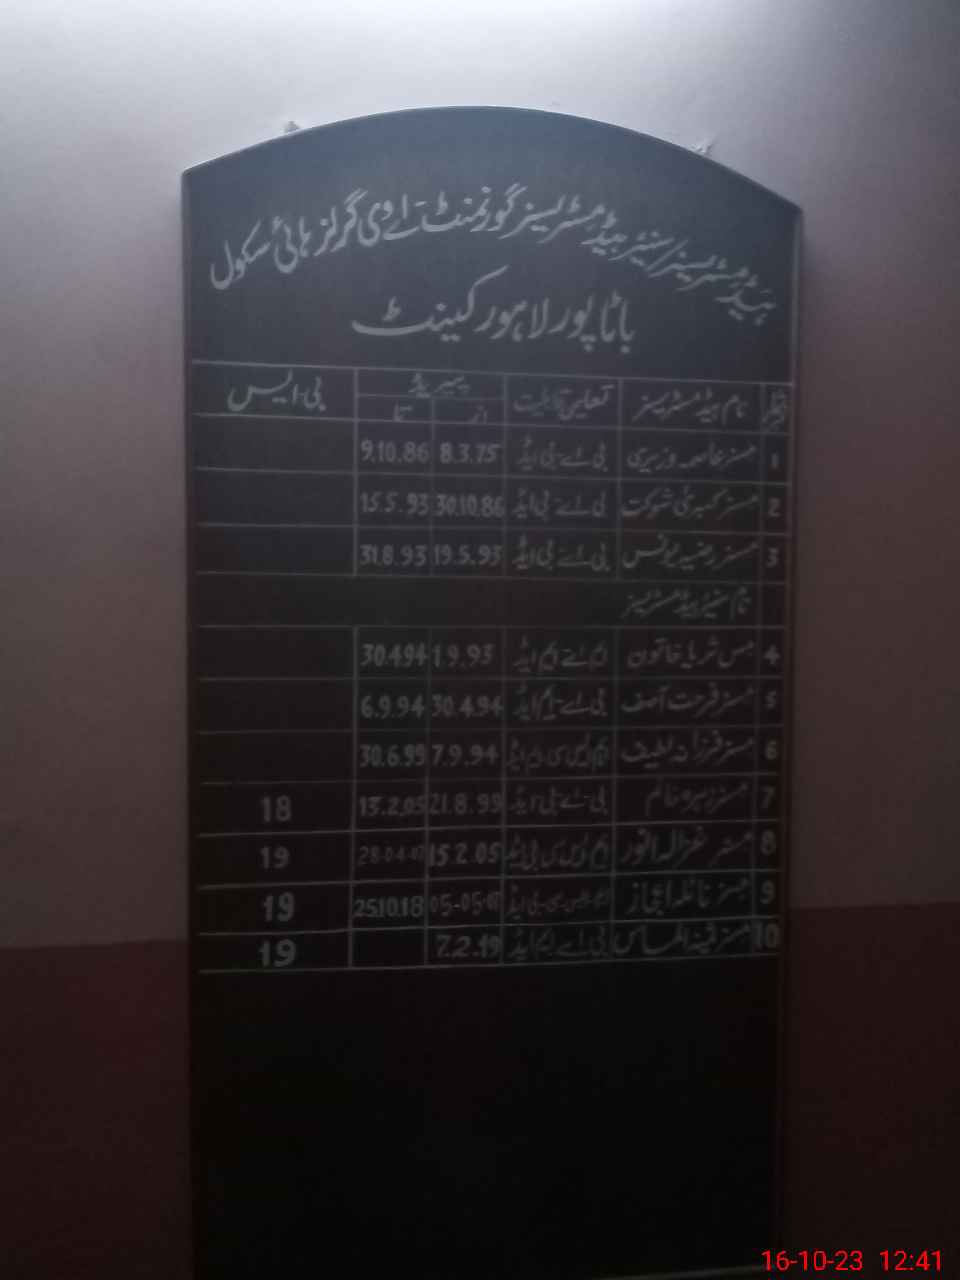 ہیڈ مسٹریسز/سنیئر ہیڈ مسٹریسز گورنمنٹ اے وی گرلز ہائی سکول
باٹاپور لاہور کینٹ
نمبر شمار نام ہیڈ مسٹریسز تعلیمی قابلیت پیریڈ بی۔ایس
از تا
1 مسز عاصمہ وزیری بی اے۔بی ایڈ 8.3.75 9.10.86
2 مسز کبریٰ شوکت بی اے۔بی ایڈ 30.10.86 15.5.93
3 مسز رضیہ یونس بی اے۔بی ایڈ 19.5.93 31.8.93
نام سنیئر ہیڈ مسٹریسز
4 مس ثریا خاتون ایم اے ایم ایڈ 1.9.93 30.4.94
5 مسز فرحت آصف بی اے۔ایم ایڈ 30.4.94 6.9.94
6 مسز فرزانہ لطیف ایم ایس سی ایم ایڈ 7.9.94 30.6.99
7 مسز خانم بی۔اے۔بی ایڈ 21.8.99 13.2.05 18
8 مسز غزالہ انور ایم ایس سی بی ایڈ 15.2.05 28-04-07 19
9 مسز نائلہ اعجاز ایم۔ایس۔سی۔بی ایڈ 05-05-07 25.10.18 19
10 مسز الماس بی اے ایم ایڈ 7.2.19 19
16-10-23 12:41